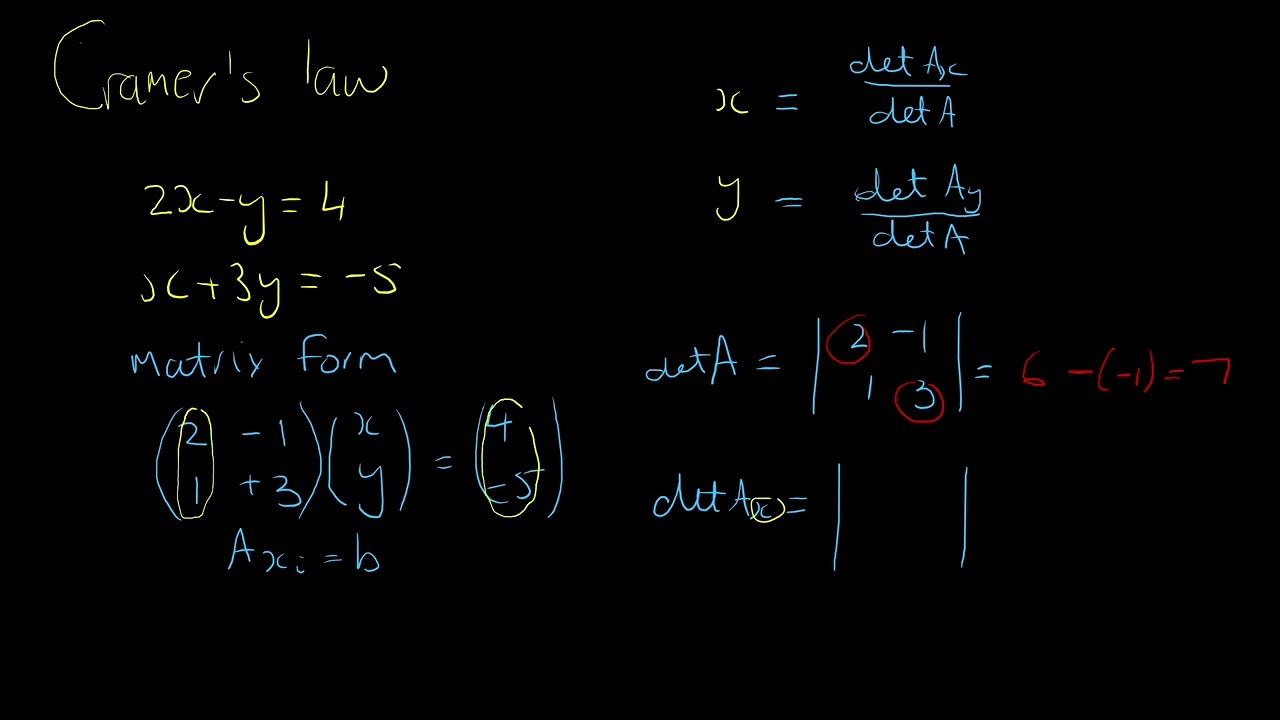 Cramer's law
2x-y=4
x+3y=-5
matrix form
(2 -1) (x) = (4)
(1 +3) (y) (-5)
Axi=b
x = det Ax / det A
y = det Ay / det A
det A = |2 -1| = 6 -(-1)=7
|1 3|
det Ax = | |